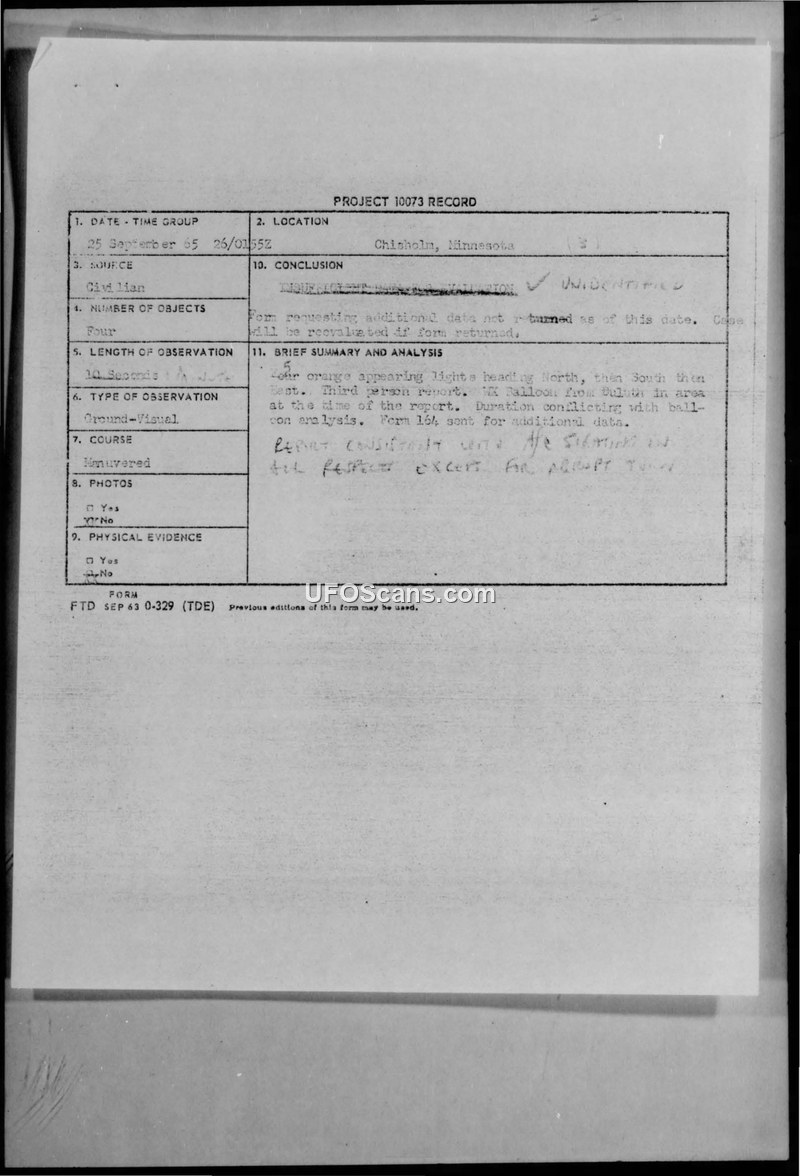 PROJECT 10073 RECORD
1. DATE - TIME GROUP
25 September 65 26/0155Z
2. LOCATION
Chisholm, Minnesota
3. SOURCE
Civilian
10. CONCLUSION
UNIDENTIFIED
Form requesting additional data not returned as of this date. Case
will be reevaluated if form returned.
4. NUMBER OF OBJECTS
Four
5. LENGTH OF OBSERVATION
10 Seconds
11. BRIEF SUMMARY AND ANALYSIS
5
Four orange appearing lights heading North, then South then
West. Third person report. Balloon from Duluth in area
at the time of the report. Duration conflicting with ball-
oon analysis. Form 164 sent for additional data.
REPORT CONSISTENT WITH A/C IN
ALL RESPECTS EXCEPT FOR ABRUPT TURN
6. TYPE OF OBSERVATION
Ground-Visual
7. COURSE
Manuvered
8. PHOTOS
□ Yes
No
9. PHYSICAL EVIDENCE
□ Yes
No
FORM
FTD SEP 63 0-329 (TDE) Previous editions of this form may be used.
UFOScans.com